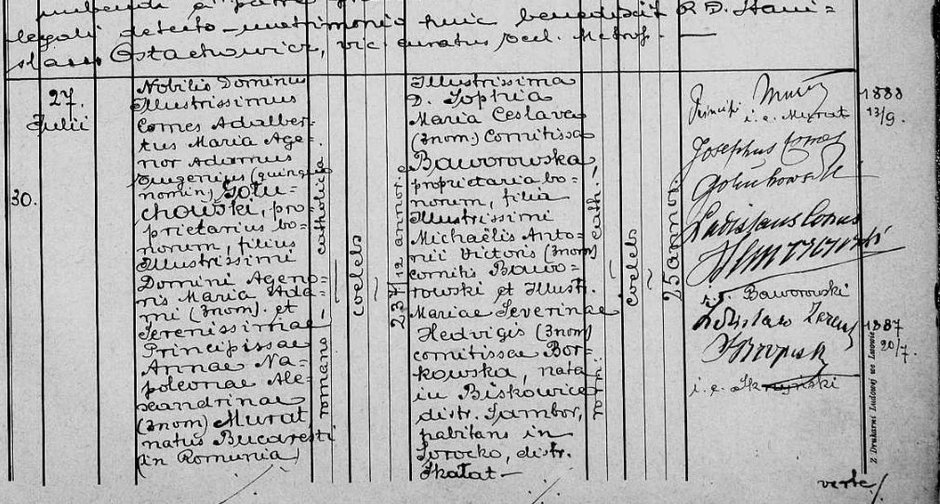 legali detecto matrimonio huic benedixit R. D. Stani-
slaus Ostachowicz, vic. curatus eccl. Metrop. —
27.
Julii
30.
Nobilis Dominus
Illustrissimus
Comes Adalber-
tus Maria Age-
nor Adamus
Eugenius (quinque
nomin) Golu-
chowski, pro-
prietarius bo-
norum, filius
Illustrissimi
Domini Ageno-
ris Maria Ada-
mi (3nom). et
Serenissimae
Principissae
Annae Na-
poleonae Ale-
xandrinae
(3nom) Murat
natus Bucaresti
(in Romunia)
romano catholica
coelebs
23 7/12 annor.
Illustrissima
D. Sophia
Maria Ceslava
(3nom) Comitissa
Baworowska
proprietaria bo-
norum, filia
Illustrissimi
Michaëlis Anto-
nii Victoris (3nom)
comitis Bawo-
rowski et Illustr.
Mariae Severinae
Hedvigis (3nom)
comitissae Bor-
kowska, nata
in Biskowice
distr. Sambor,
habitans in
Sorocko, distr.
Skałat —
rom. cath.
coelebs
25 annor
Principi Murat
i. e. Murat
Josephus Comes
Goluchowski
Ladislaus Comes
i. e. Baworowski
i. e. Skrzyński
1888
13/9.
1887
20/7.
Z Drukarni Ludowej we Lwowie
verte/